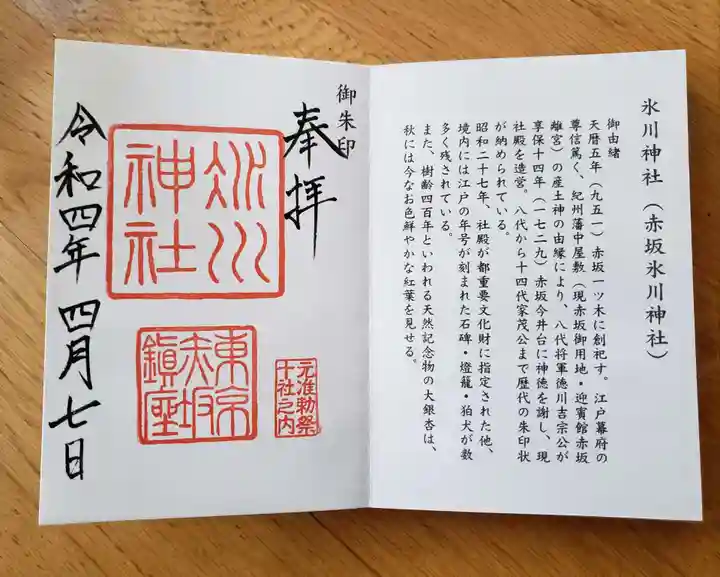 氷川神社（赤坂氷川神社）
御由緒
天暦五年（九五一）赤坂一ツ木に創祀す。江戸幕府の
尊信篤く、紀州藩中屋敷（現赤坂御用地・迎賓館赤坂
離宮）の産土神の由縁により、八代将軍徳川吉宗公が
享保十四年（一七二九）赤坂今井台に神徳を謝し、現
社殿を造営。八代から十四代家茂公まで歴代の朱印状
が納められている。
昭和二十七年、社殿が都重要文化財に指定された他、
境内には江戸の年号が刻まれた石碑・燈籠・狛犬が数
多く残されている。
また、樹齢四百年といわれる天然記念物の大銀杏は、
秋には今なお色鮮やかな紅葉を見せる。
御朱印
奉拝
氷川
神社
元准勅祭
十社之内
東京
赤坂
鎮座
令和四年 四月七日